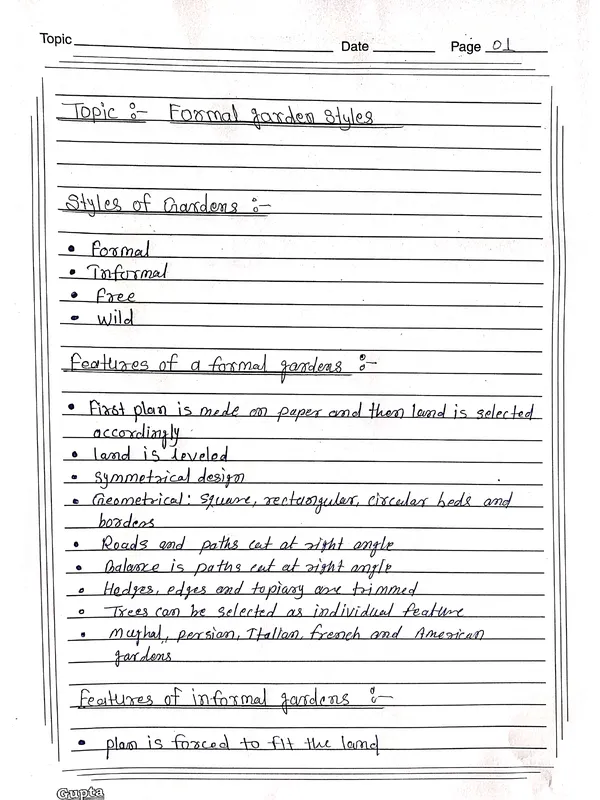 Topic
Date
Page 01
Topic :- Formal garden styles
Styles of Gardens :-
• Formal
• Informal
• Free
• Wild
Features of a formal gardens :-
• First plan is made on paper and then land is selected
accordingly
• land is leveled
• symmetrical design
• Geometrical: Square, rectangular, circular beds and
borders
• Roads and paths cut at right angle
• Balance is paths cut at right angle
• Hedges, edges and topiary are trimmed
• Trees can be selected as individual feature
• Mughal, persian, Itallan, french and American
gardens
Features of informal gardens :-
• plan is forced to fit the land
Gupta